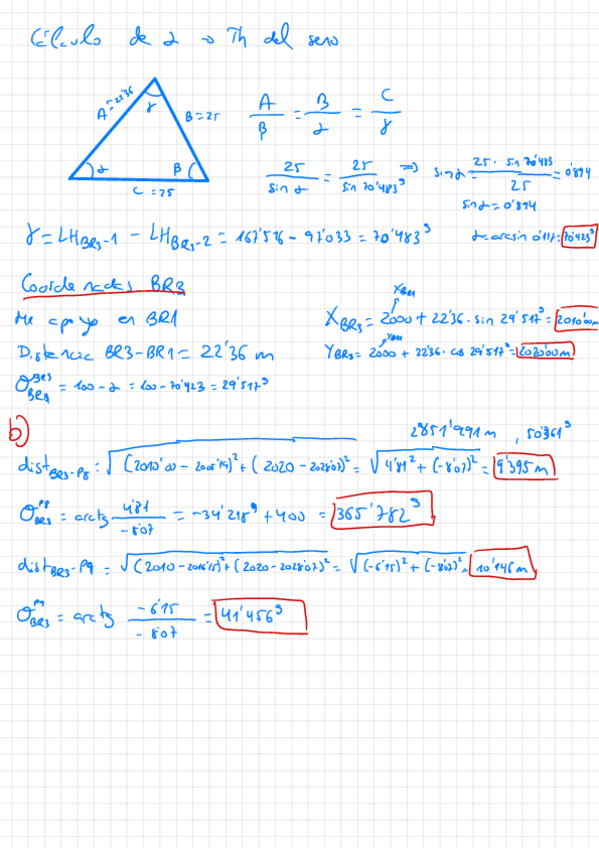 Cálculo de α → Th del seno
A = 22'36
γ
B = 25
α
β
C = 25
A/β = B/α = C/γ
25/sin α = 25/sin 70'483ᵍ ⇒ sin α = 25 · sin 70'483/25 = 0'894
sin α = 0'894
γ = LH_BR3-1 − LH_BR3-2 = 167'516 − 97'033 = 70'483ᵍ
α = arcsin 0'117 = 70'423ᵍ
Coordenadas BR3
Me apoyo en BR1
X_BR1
X_BR3 = 2000 + 22'36 · sin 29'517ᵍ = 2010'00m
Distancia BR3-BR1 = 22'36 m
Y_BR1
Y_BR3 = 2000 + 22'36 · cos 29'517ᵍ = 2020'00m
= 100 − α = 100 − 70'423 = 29'517ᵍ
b)
2851'991 m , 50'361ᵍ
dist_BR3-P8 = √((2010'00 − 2005'19)² + (2020 − 2028'07)²) = √(4'81² + (−8'07)²) = 9'395 m
θ_BR3^P8 = arctg 4'81/−8'07 = −34'218ᵍ + 400 = 365'782ᵍ
dist_BR3-P9 = √((2010 − 2016'15)² + (2020 − 2028'07)²) = √((−6'15)² + (−8'07)²) = 10'146 m
θ_BR3^P9 = arctg −6'15/−8'07 = 41'456ᵍ